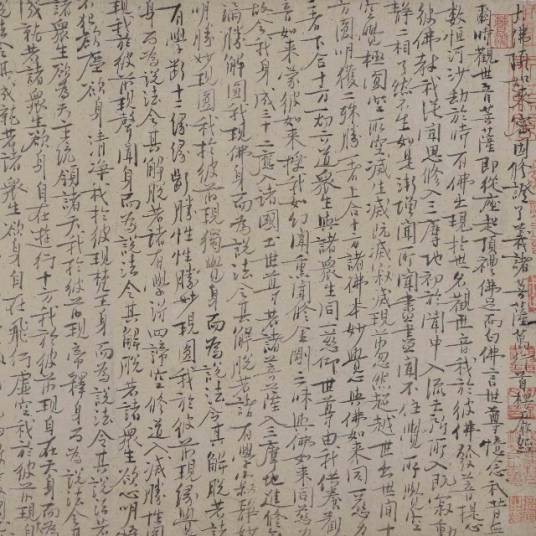 大佛頂如來密因修證了義諸菩薩萬行首楞嚴經
爾時觀世音菩薩即從座起頂禮佛足而白佛言世尊憶念我昔無
數恒河沙劫於時有佛出現於世名觀世音我於彼佛發菩提心
彼佛教我從聞思修入三摩地初於聞中入流亡所所入既寂動
靜二相了然不生如是漸增聞所聞盡盡聞不住覺所覺空
空覺極圓空所空滅生滅既滅寂滅現前忽然超越世出世間十
方圓明獲二殊勝一者上合十方諸佛本妙覺心與佛如來同一慈力
二者下合十方一切六道衆生與諸衆生同一悲仰世尊由我供養觀
音如來蒙彼如來授我如幻聞熏聞修金剛三昧與佛如來同慈力
故令我身成三十二應入諸國土世尊若諸菩薩入三摩地進修無
漏勝解圓我現佛身而為說法令其解脫若諸有學寂靜妙
明勝妙現圓我於彼前現獨覺身而為說法令其解脫若諸
有學斷十二緣緣斷勝性勝妙現圓我於彼前現緣覺
身而為說法令其解脫若諸有學得四諦空修道入滅勝性圓
現我於彼前現聲聞身而為說法令其解脫若諸衆生欲心明悟
不犯欲塵欲身清淨我於彼前現梵王身而為說法令其解脫若
諸衆生欲為天主統領諸天我於彼前現帝釋身而為說法令其
成就若諸衆生欲身自在遊行十方我於彼前現自在天身而為
說法令其成就若諸衆生欲身自在飛行虛空我於彼前現